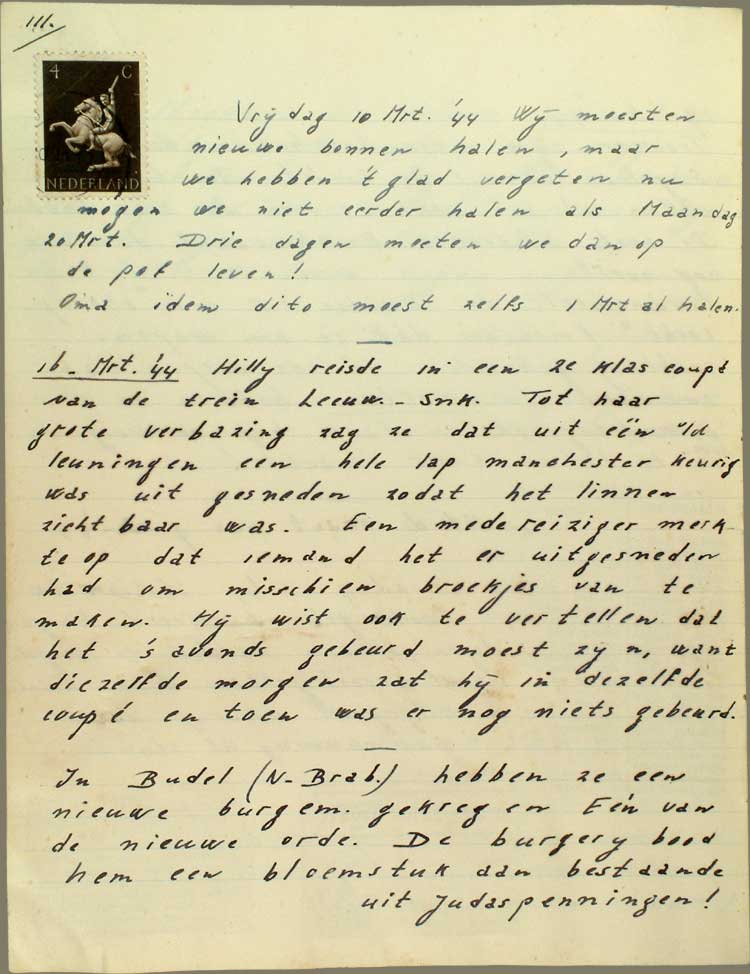 III.
4 C
NEDERLAND
Vrijdag 10 Mrt. '44 Wij moesten
nieuwe bonnen halen, maar
we hebben 't glad vergeten nu
mogen we niet eerder halen als Maandag
20 Mrt. Drie dagen moeten we dan op
de pof leven!
Oma idem dito moest zelfs 1 Mrt al halen.
16 - Mrt. '44 Hilly reisde in een 2e klas coupé
van de trein Leeuw. - Snk. Tot haar
grote verbazing zag ze dat uit één v/d
leuningen een hele lap manchester keurig
was uit gesneden zodat het linnen
zichtbaar was. Een medereiziger merk-
te op dat iemand het er uitgesneden
had om misschien broekjes van te
maken. Hij wist ook te vertellen dat
het 's avonds gebeurd moest zijn, want
diezelfde morgen zat hij in dezelfde
coupé en toen was er nog niets gebeurd.
In Budel (N-Brab.) hebben ze een
nieuwe burgem. gekregen Eén van
de nieuwe orde. De burgery bood
hem een bloemstuk aan bestaande
uit Judaspenningen!